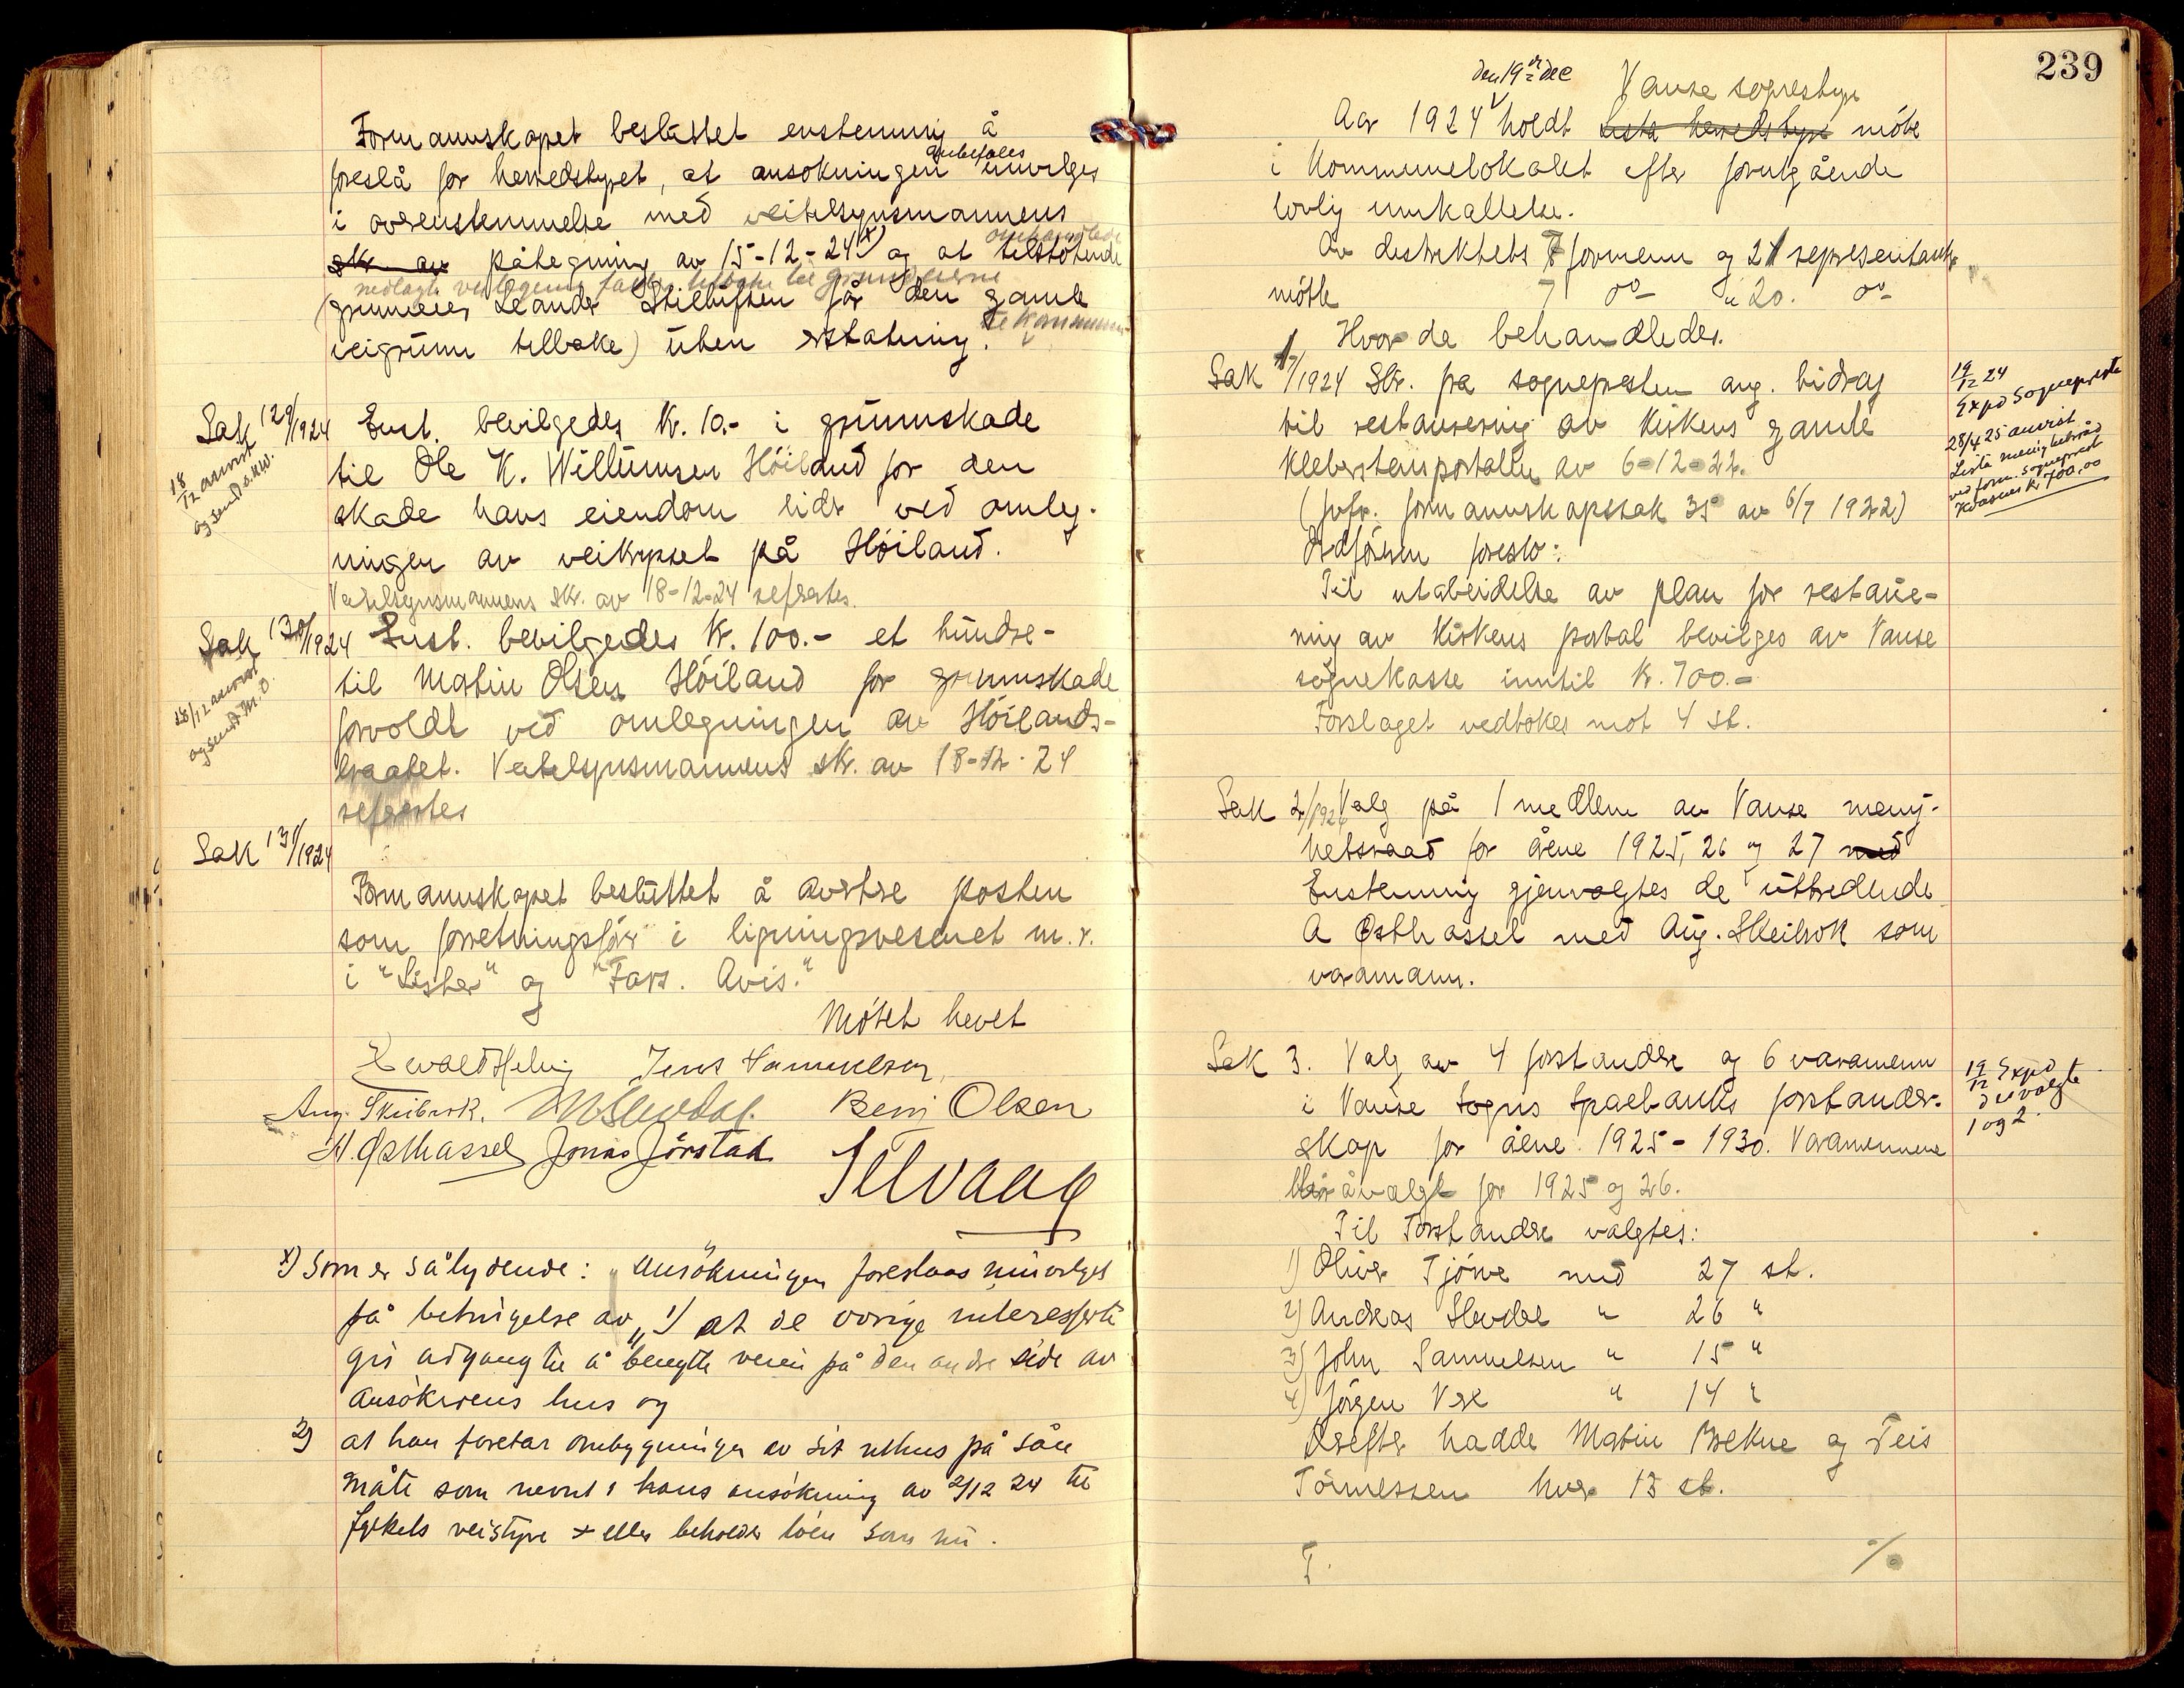 Formannskapet besluttet enstemmig å
foreslå for herredstyret, at ansøkningen anbefales innvilges
i overenstemmelse med veitilsynsmannens
skr. av påtegning av 15-12-24 x) og at omhandlede tilstøtende
nedlagte
grunneier Leander får den gamle
veigrunn tilbake) uten erstatning.
Sak 129/1924 Enst. bevilgedes Kr. 10.- i grunnskade
til Ole K. Willumsen Høiland for den
skade hans eiendom lidr ved omleg-
ningen av veikrysset på Høiland.
Veitilsynsmannens skr. av 18-12-24 refertes.
18/12 anvist
og sendt
Sak 130/1924 Enst. bevilgedes Kr. 100.- et hundre-
til Matin Olsen Høiland for grunnskade
forvoldt ved omlegningen av Høilands-
kraatet. Veitilsynsmannens skr. av 18-12-24
refertes
18/12 anvist
og sendt M.O.
Sak 131/1924
Formannskapet besluttet å avertere posten
som forretningsfør i ligningsvesenet m.v.
i "Lister" og "Fars. Avis."
Møtet hevet
Jens Samuelsen
Aug. Skeibrok. Benj Olsen
A. Østhassel Jonas Jørstad
x) Som er sålydende: "Ansøkningen foreslaas innvilget
på betingelse av "1) at de øvrige interesserte
gis adgang til å benytte veien på den andre side av
ansøkerens hus og
2) at han foretar ombygningen av sit uthus på sån
måte som nevnt i hans ansøkning av 2/12 24 til
fylkets veistyre + eller beholder løen som nu.
239
den 19de dec Vanse sognestyre
Aar 1924 holdt Lista herredstyre møte
i Kommunelokalet efter forutgående
lovlig innkallelse.
Av destriktets 7 formenn og 21 representanter
møtte 7 do " 20. do
Hvor da behandledes.
Sak 1/1924 Skr. fra sognepresten ang. bidrag
til restaurering av Kirkens gamle
Kleberstensportaller av 6-12-22.
(jvfr. formannskapssak 35 av 6/7 1922)
Ordføreren foreslo:
Til utarbeidelse av plan for restaure-
ring av Kirkens portal bevilges av Vanse
sognekasse inntil Kr. 700.-
Forslaget vedtokes mot 4 st.
19/12 24
Expd Sognepresten
28/4 25 anvist
Lista menighetsråd
ved form. sogneprest
Kr. 700,00
Sak 2/1924 Valg på 1 medlem av Vanse menig-
hetsraad for årene 1925, 26 og 27 med
Enstemmig gjenvalgtes de uttredende
A Østhassel med Aug. Skeibrok som
varamann.
Sak 3. Valg av 4 forstandere og 6 varamenn
i Vanse Sogns Sparebanks forstander-
skap for årene 1925 - 1930. Varamennene
blir å valgt for 1925 og 26.
Til Forstandere valgtes:
1) Oliver Tjørve med 27 st.
2) Andreas Slevdal " 26 "
3) John Samuelsen " 15 "
4) Jørgen Vere " 14 "
Derefter hadde Matin Brekne og Teis
Tønnessen hver 13 st.
19/12 Expd
de valgte
1 og 2.
T. ./.